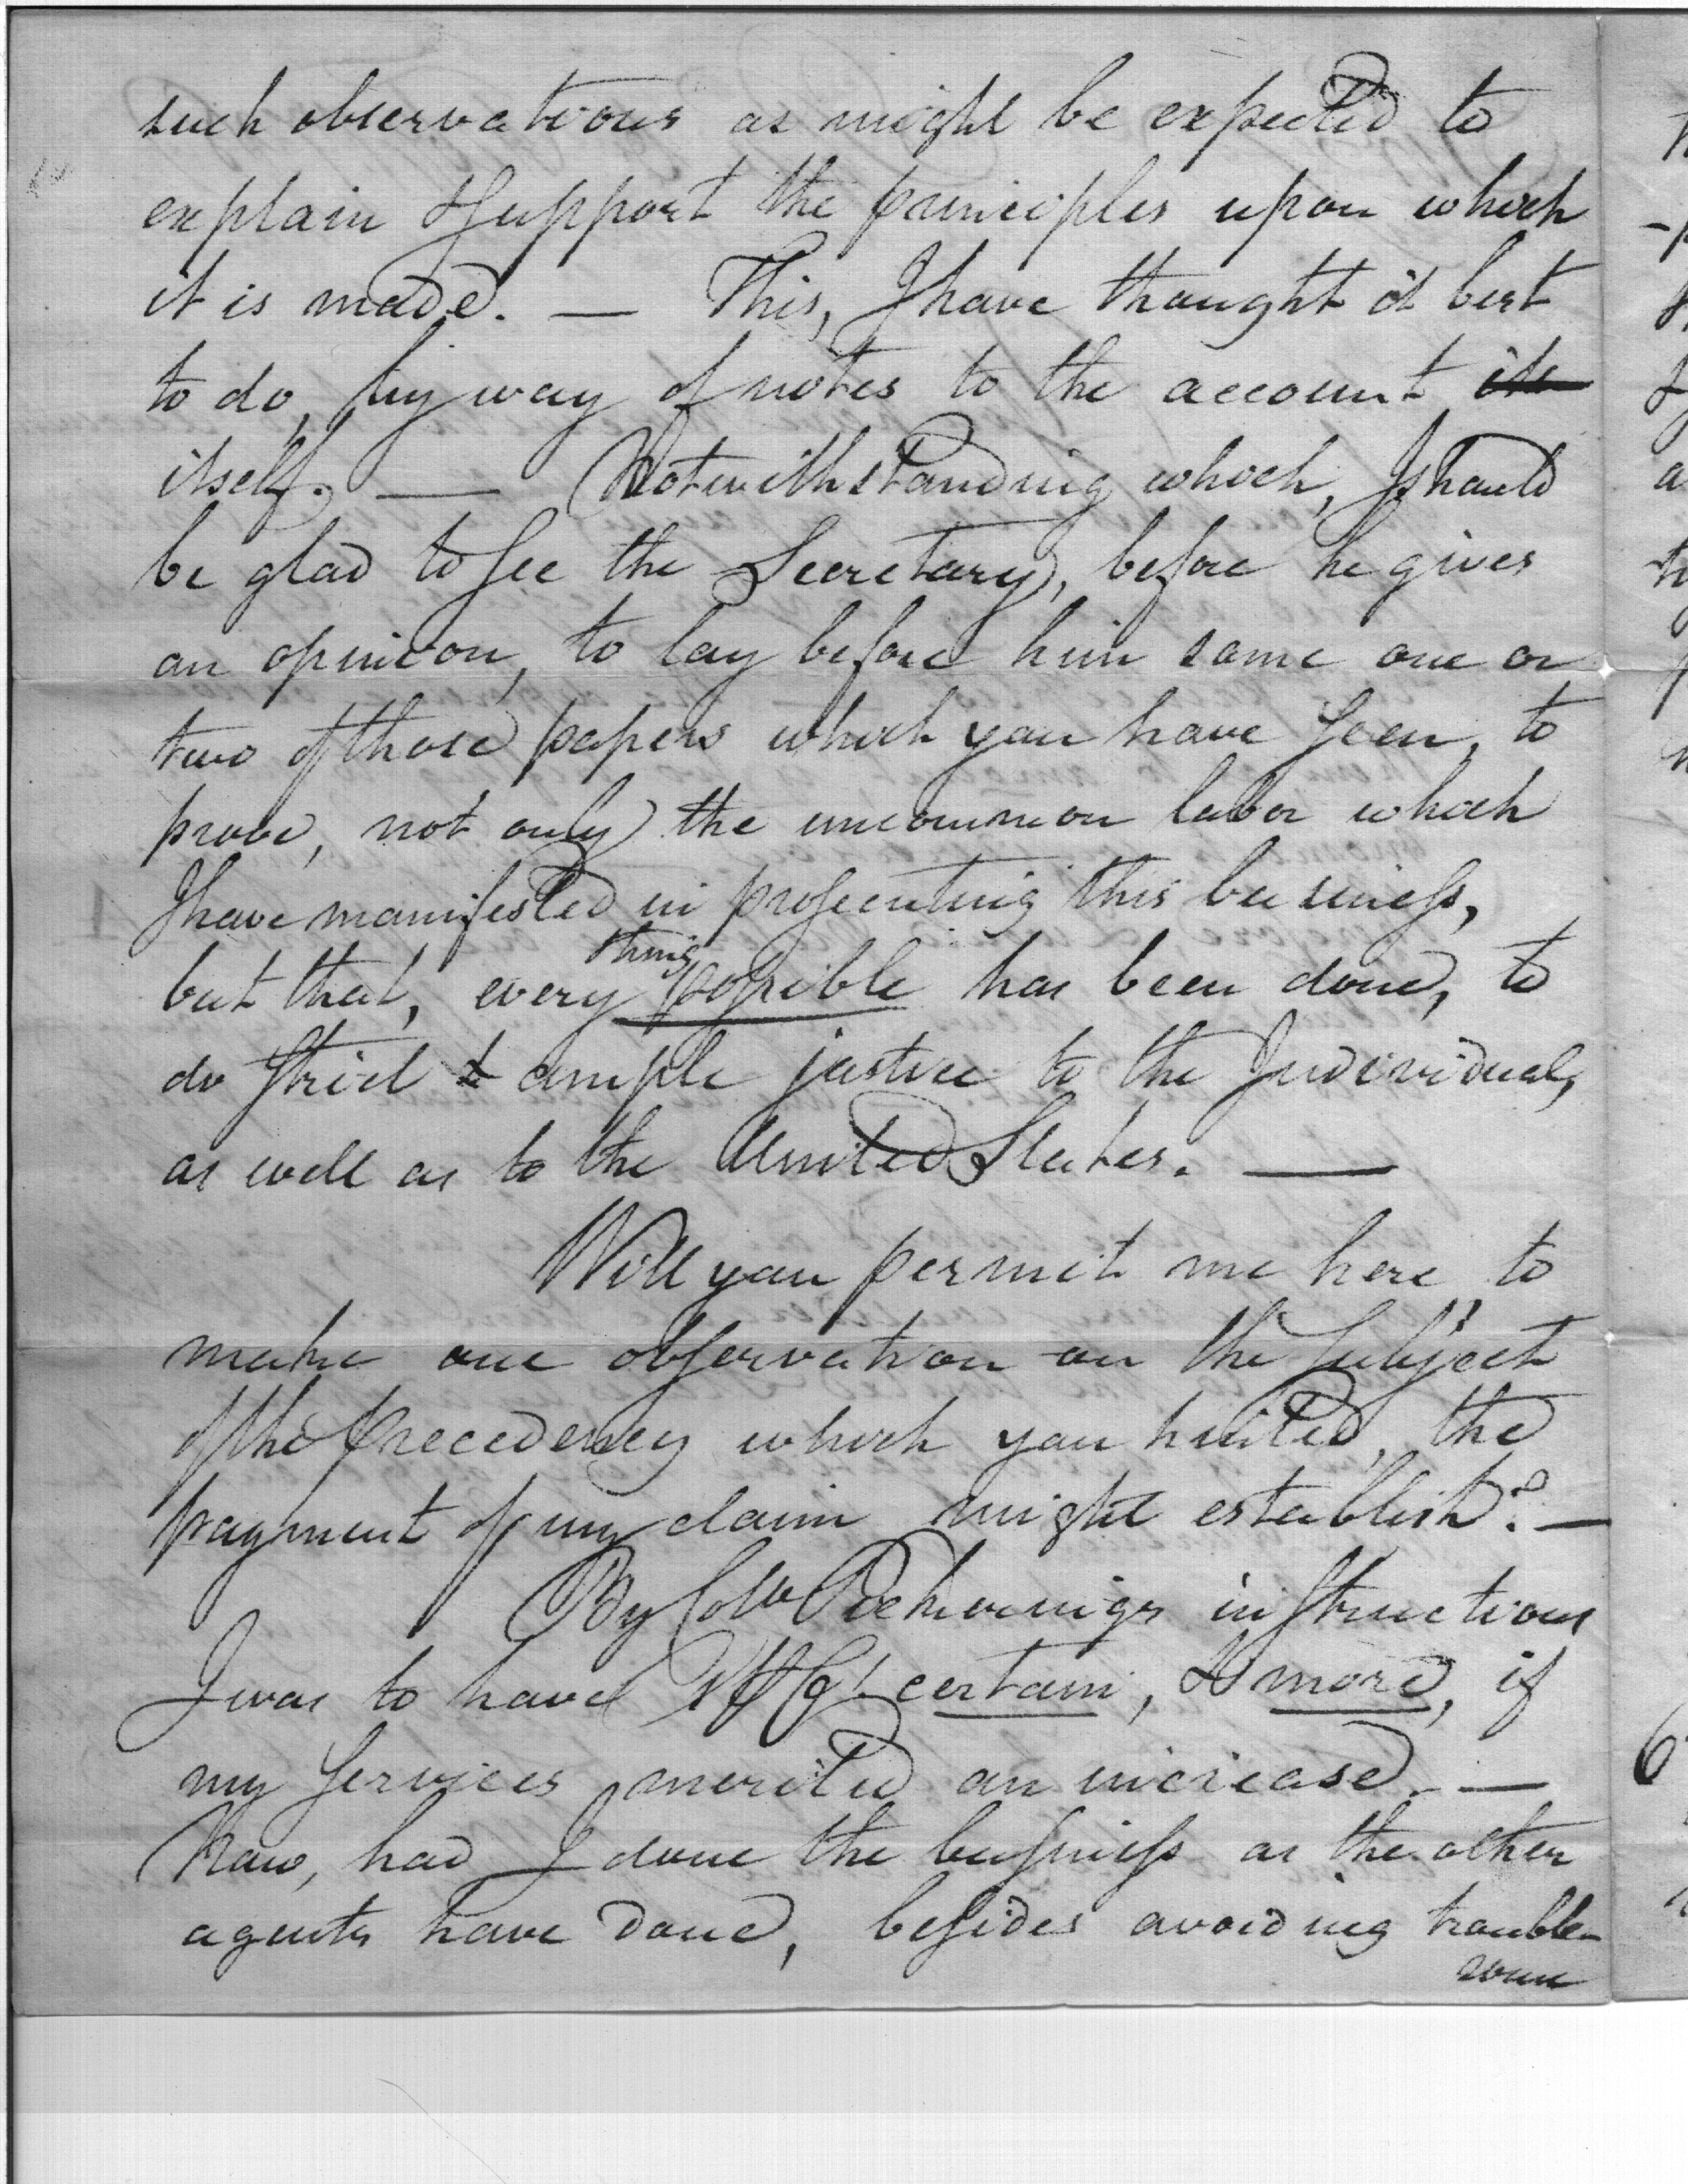 such observations as might be expected to
explain & support the principles upon which
it is made. — This, I have thought it best
to do, by way of notes to the account its
itself. — Notwithstanding which, I should
be glad to see the Secretary, before he gives
an opinion, to lay before him some one or
two of those papers which you have seen, to
prove, not only the uncommon labor which
I have manifested in prosecuting this business,
but that, every thing possible has been done, to
do strict & ample justice to the Individual,
as well as to the United States. —
Will you permit me here to
make one observation on the subject
of the precedency which you hinted, the
payment of my claim might establish? —
By Colo Pickerings instructions
I was to have certain, & more, if
my services merited an increase. —
Now, had I done the business as the other
agents have done, besides avoiding trouble-
some